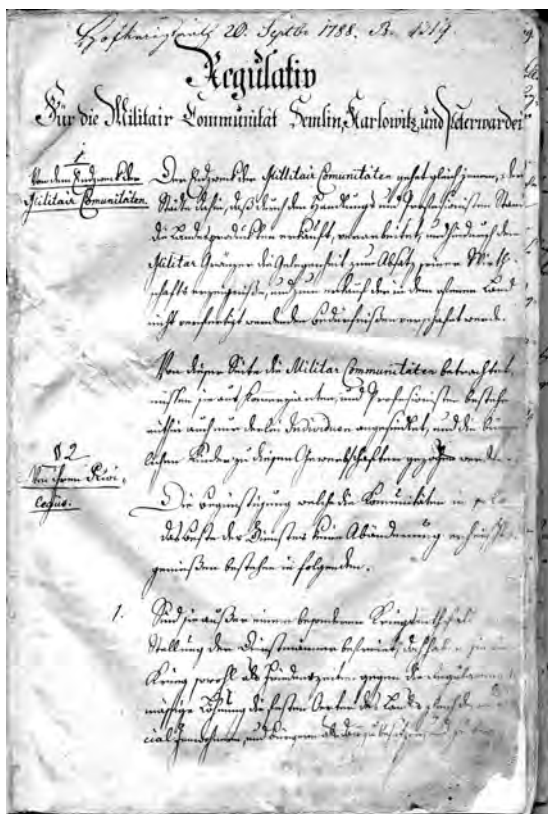 20. Septbr 1788. B. 4219.
Regulativ
Für die Militair Communität Semlin, Karlowitz und Peterwardei
1
Von dem Endzweck der
Militair Comunitäten.
Der Endzweck der Millitair Comunitäten gehet gleich jenem, der
Städte dahin, daß durch den Handlungs und Professionisten Stan
die Landesprodukten erkauft, verarbeitet, und hiedurch dem
Militar Gränzer die Gelegenheit zum Absatz seiner Wirth
schafts erzeugnisse, und zum erkauf der in dem offenen Land
nicht verfertigt werdenden Bedürfnissen verschaft werde.
Von dieser Seite die Militar Communitäten betrachtet,
müssen sie aus Kommerzianten, und Professionisten bestehen
mithin auch nur derlei Individuen angesiedelt, und die bürger
lichen Kinder zu diesen Gewerbschaften gezogen werden.
§ 2
Von ihren Privi-
legiis.
Die Begünstigung welche die Komunitäten in
das Beste der Dienstes keine Abänderung erheischt
genießen bestehen in folgenden.
1. Sind sie außer einem besonderen Kriegsnothfall
Stellung der Dienstmänner befreiet, doch haben sie im
Krieg sowohl als Friedenszeiten gegen die Regulament
mässige Löhnung die festen Orte des Landes
cial Inwohnern, und Bürgern